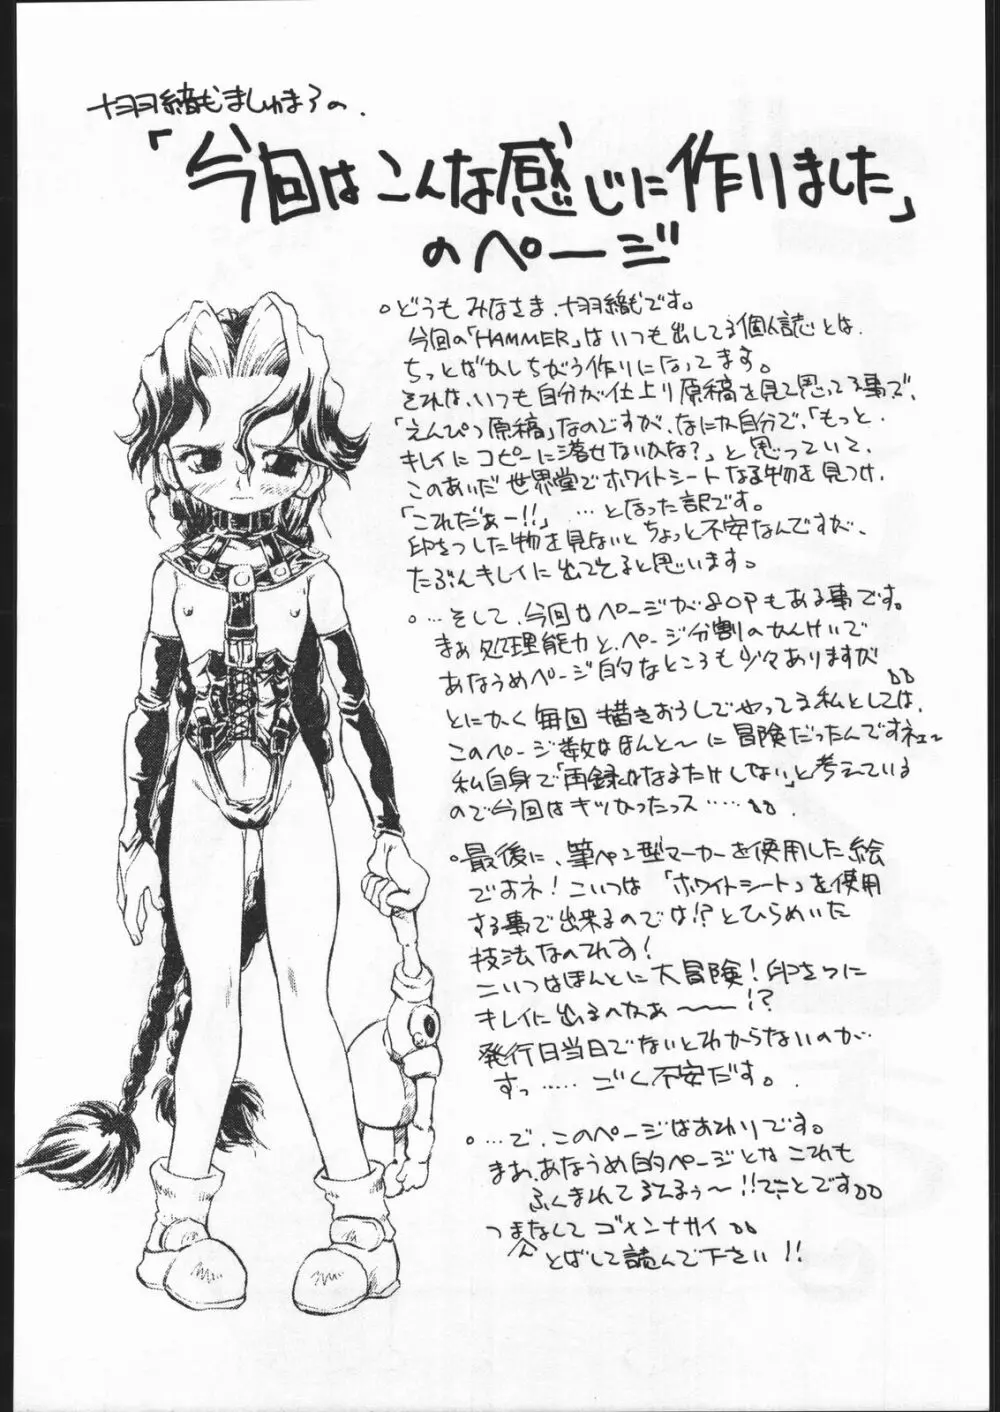 十羽織ましゅまろの、
「今回はこんな感じに作りました」
のページ
。どうもみなさま、十羽織です。
今回の「HAMMER」はいつも出してる個人誌とは、
ちっとばかしちがう作りになってます。
それは、いつも自分が仕上り原稿を見て思ってる事で、
「えんぴつ原稿」なのですが、なにか自分で、「もっと、
キレイにコピーに落せないかな?」と思っていて、
このあいだ世界堂でホワイトシートなる物を見つけ、
「これだぁー!!」…となった訳です。
印さつした物を見ないとちょっと不安なんですが、
たぶんキレイに出てると思います。
。…そして、今回はページが80Pもある事です。
まぁ処理能力と、ページ分割のかんけいで
あなうめページ的なところも少々ありますが
とにかく毎回描きおろしでやってる私としては、
このページ数はほんと〜に冒険だったんですネェ〜
私自身で「再録はなるたけしない」と考えている
ので今回はキツかったっス……。
。最後に、筆ペン型マーカーを使用した絵
ですネ!こいつは「ホワイトシート」を使用
する事で出来るのでは!?とひらめいた
技法なのです!
こいつはほんとに大冒険!印さつに
キレイに出るかなぁ〜〜!?
発行日当日でないとわからないのが、
すっ……ごく不安だす。
。…で、このページはおわりです。
まぁ、あなうめ的ページとはこれも
ふくまれてるんるぅ〜!!てことです
つまんなくてゴメンナサイ
とばして読んで下さい!!